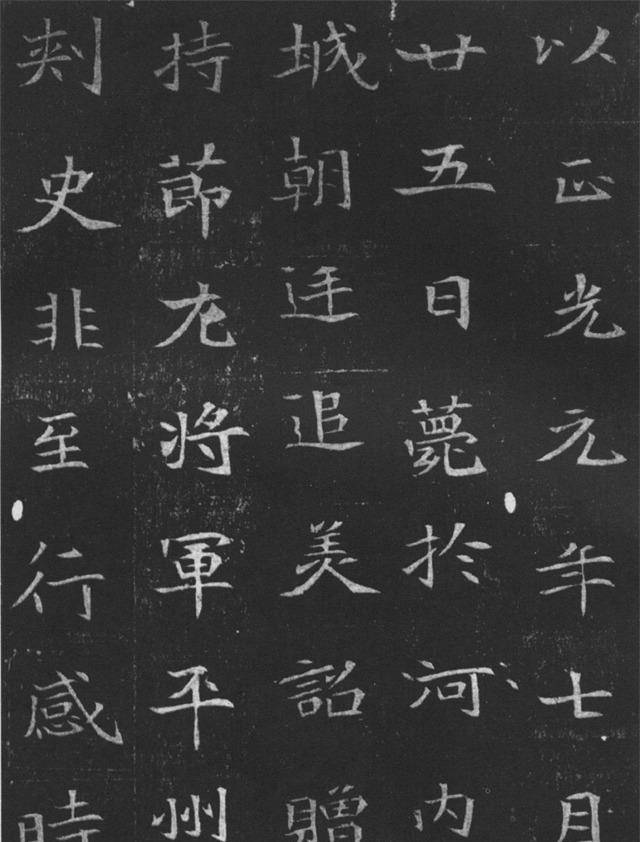 以正光元年七月
廿五日薨於河内
城朝廷追美詔贈
持莭左將軍平州
刾史非至行感時